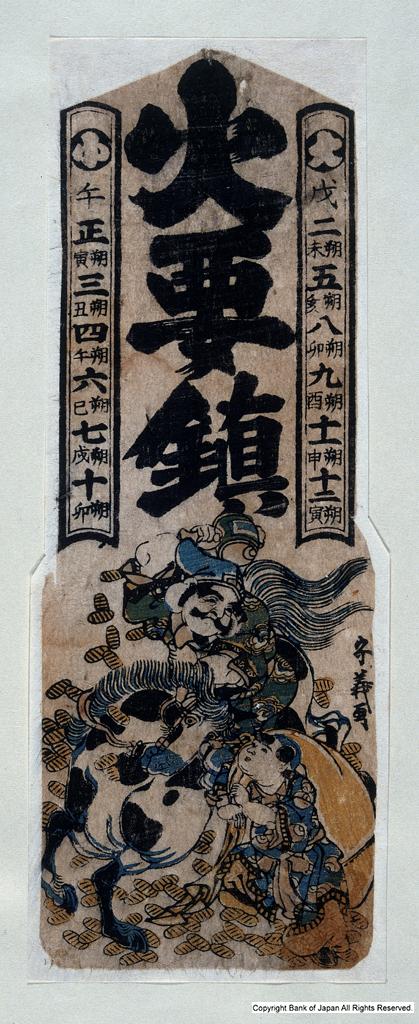 大 戊 二 朔未 五 朔亥 八 朔卯 九 朔酉 十一 朔申 十二 朔寅
火要鎮
小 午 正 朔寅 三 朔丑 四 朔午 六 朔巳 七 朔戌 十 朔卯
Copyright Bank of Japan All Rights Reserved.